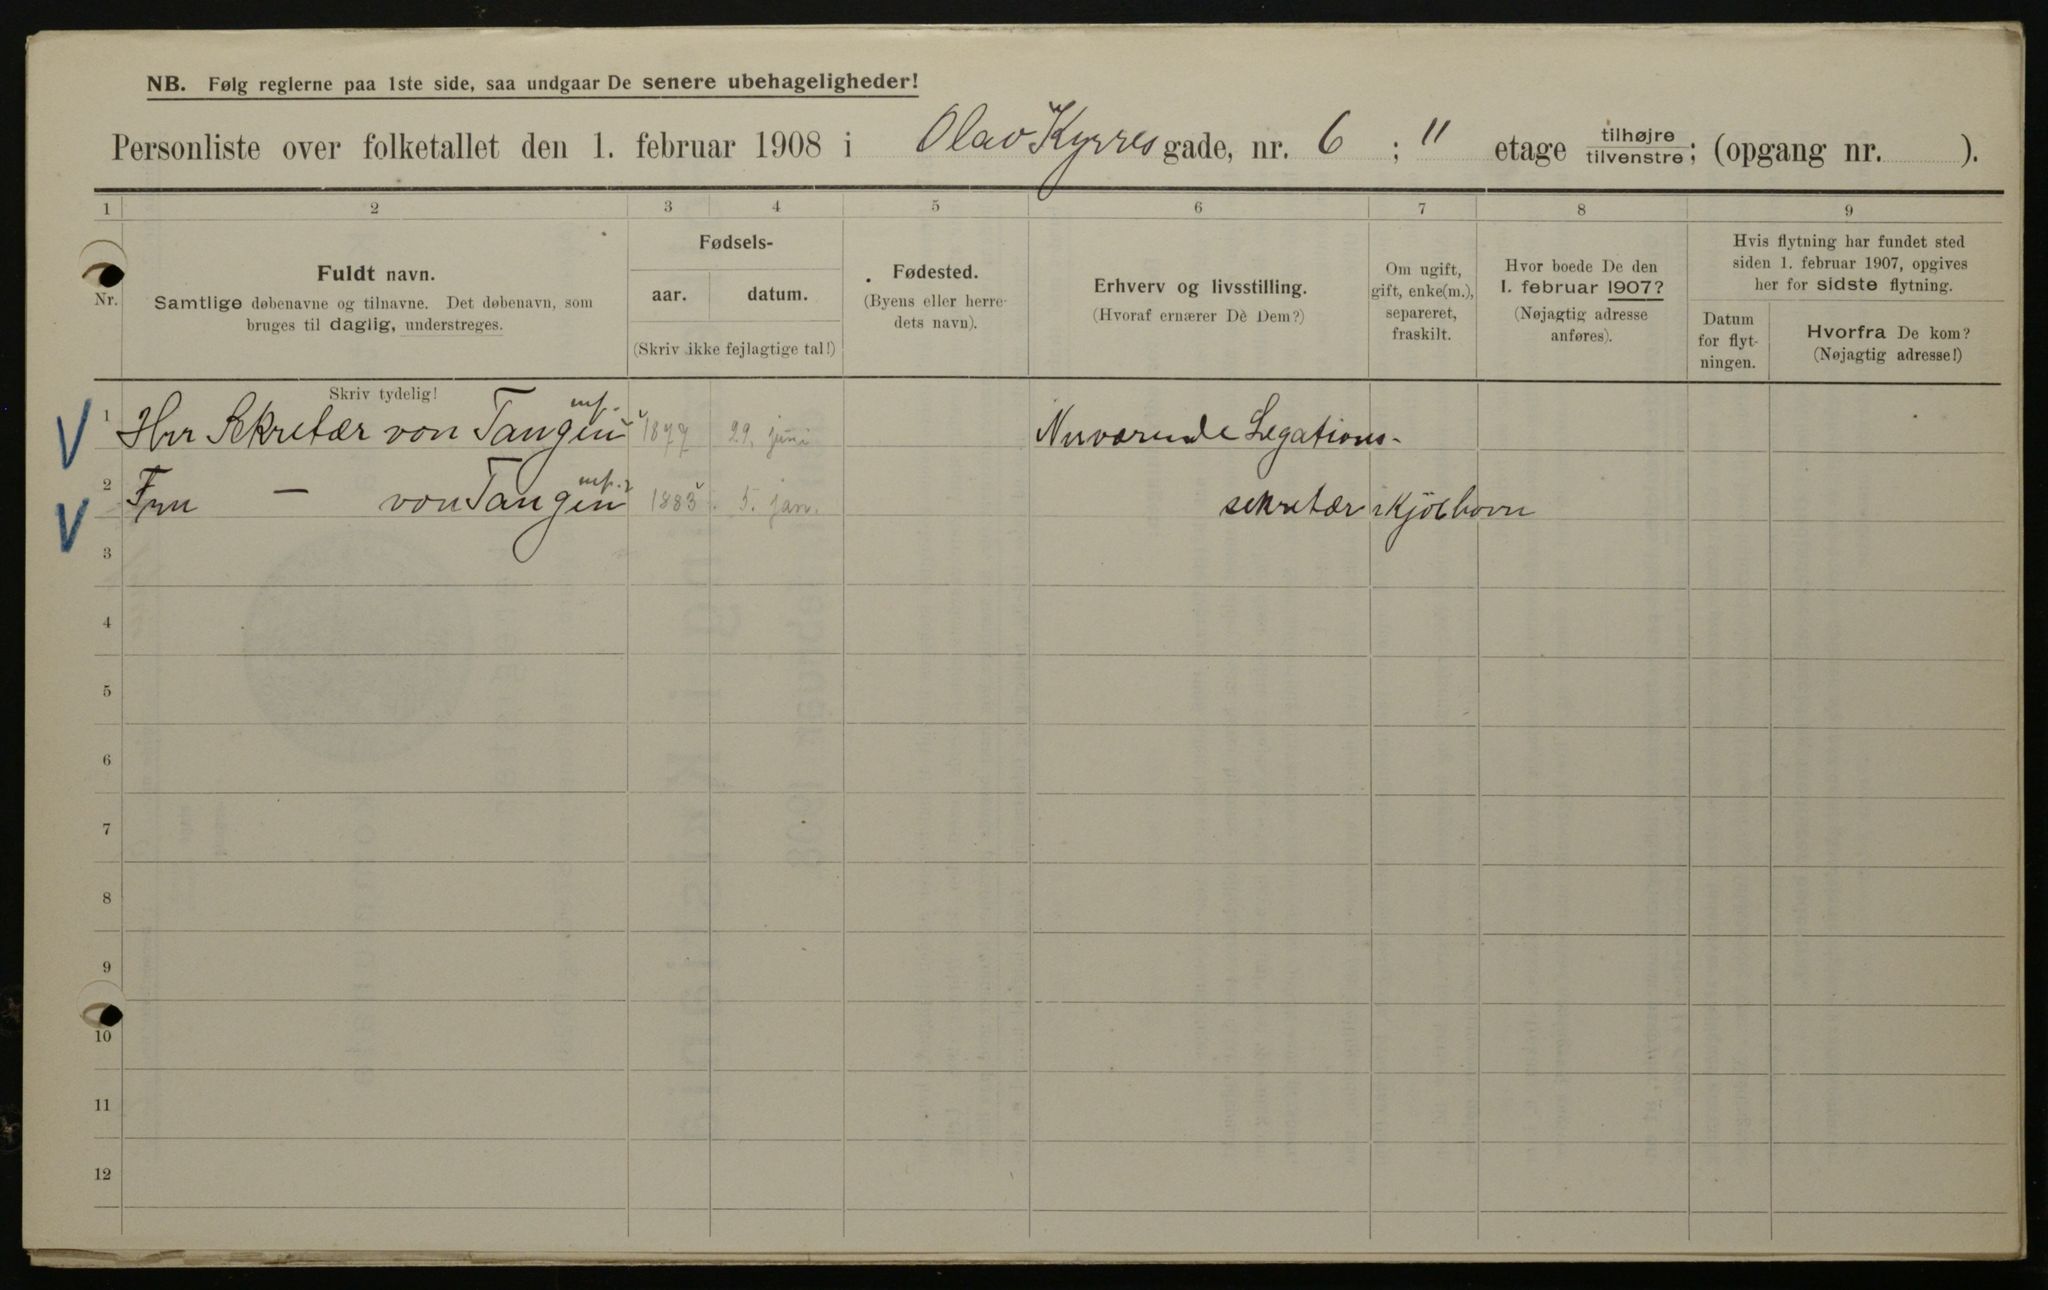 NB. Følg reglerne paa 1ste side, saa undgaar De senere ubehageligheder!
Personliste over folketallet den 1. februar 1908 i Olav Kyrres gade, nr. 6 ; " etage tilhøjre tilvenstre; (opgang nr. ).
1 2 3 4 5 6 7 8 9
Nr.
Fuldt navn.
Samtlige døbenavne og tilnavne. Det døbenavn, som
bruges til daglig, understreges.
Fødsels-
aar. datum.
(Skriv ikke fejlagtige tal!)
Fødested.
(Byens eller herre-
dets navn).
Erhverv og livsstilling.
(Hvoraf ernærer Dè Dem?)
Om ugift,
gift, enke(m.),
separeret,
fraskilt.
Hvor boede De den
1. februar 1907?
(Nøjagtig adresse
anføres).
Hvis flytning har fundet sted
siden 1. februar 1907, opgives
her for sidste flytning.
Datum
for flyt-
ningen.
Hvorfra De kom?
(Nøjagtig adresse!)
Skriv tydelig!
1 Herr Sekretær von Tangen 1877 29. juni Nuværende Legations-
2 Fru — von Tangen 1883 5. jan. sekretær i Kjöbhavn
3
4
5
6
7
8
9
10
11
12